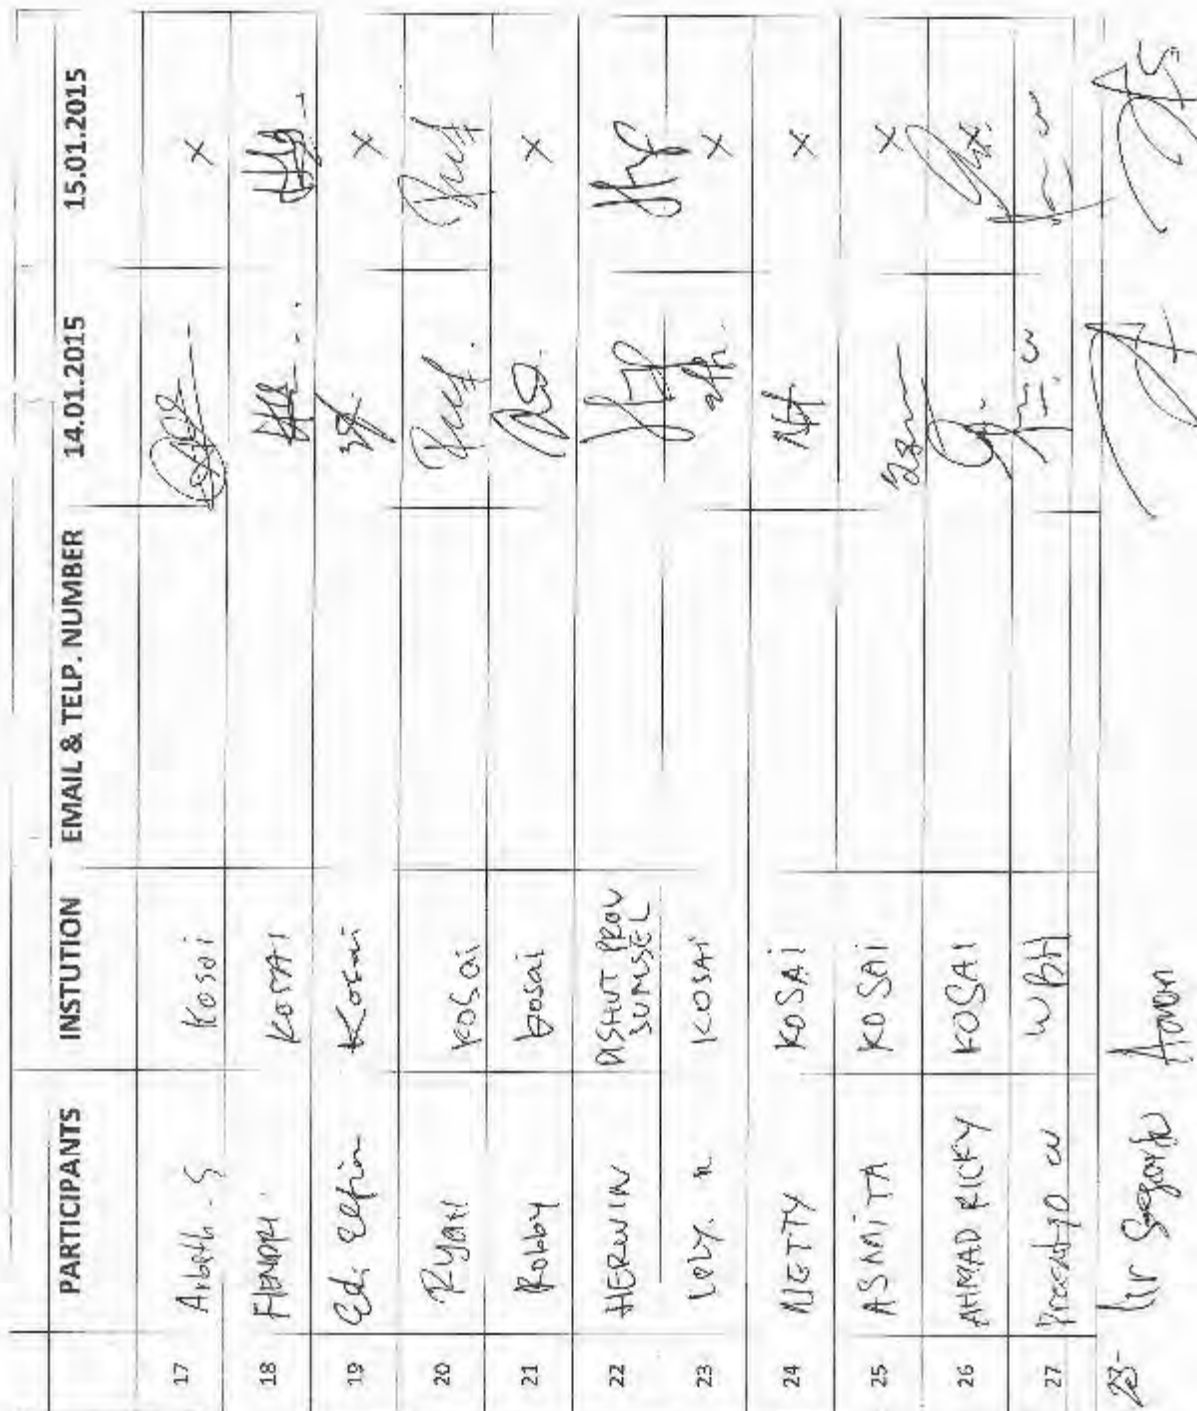 PARTICIPANTS INSTUTION EMAIL & TELP. NUMBER 14.01.2015 15.01.2015
17 Kosai X
18 HENDRI KOSAI
19 Edi Elfian Kosai X
20 Ryan Kosai
21 Robby Kosai X
22 HERWIN DISHUT PROV
SUMSEL
23 Lely. n KOSAI X
24 NETTY KOSAI X
25 ASMITA KOSAI X
26 AHMAD RICKY KOSAI
27 WBH
28- Ir